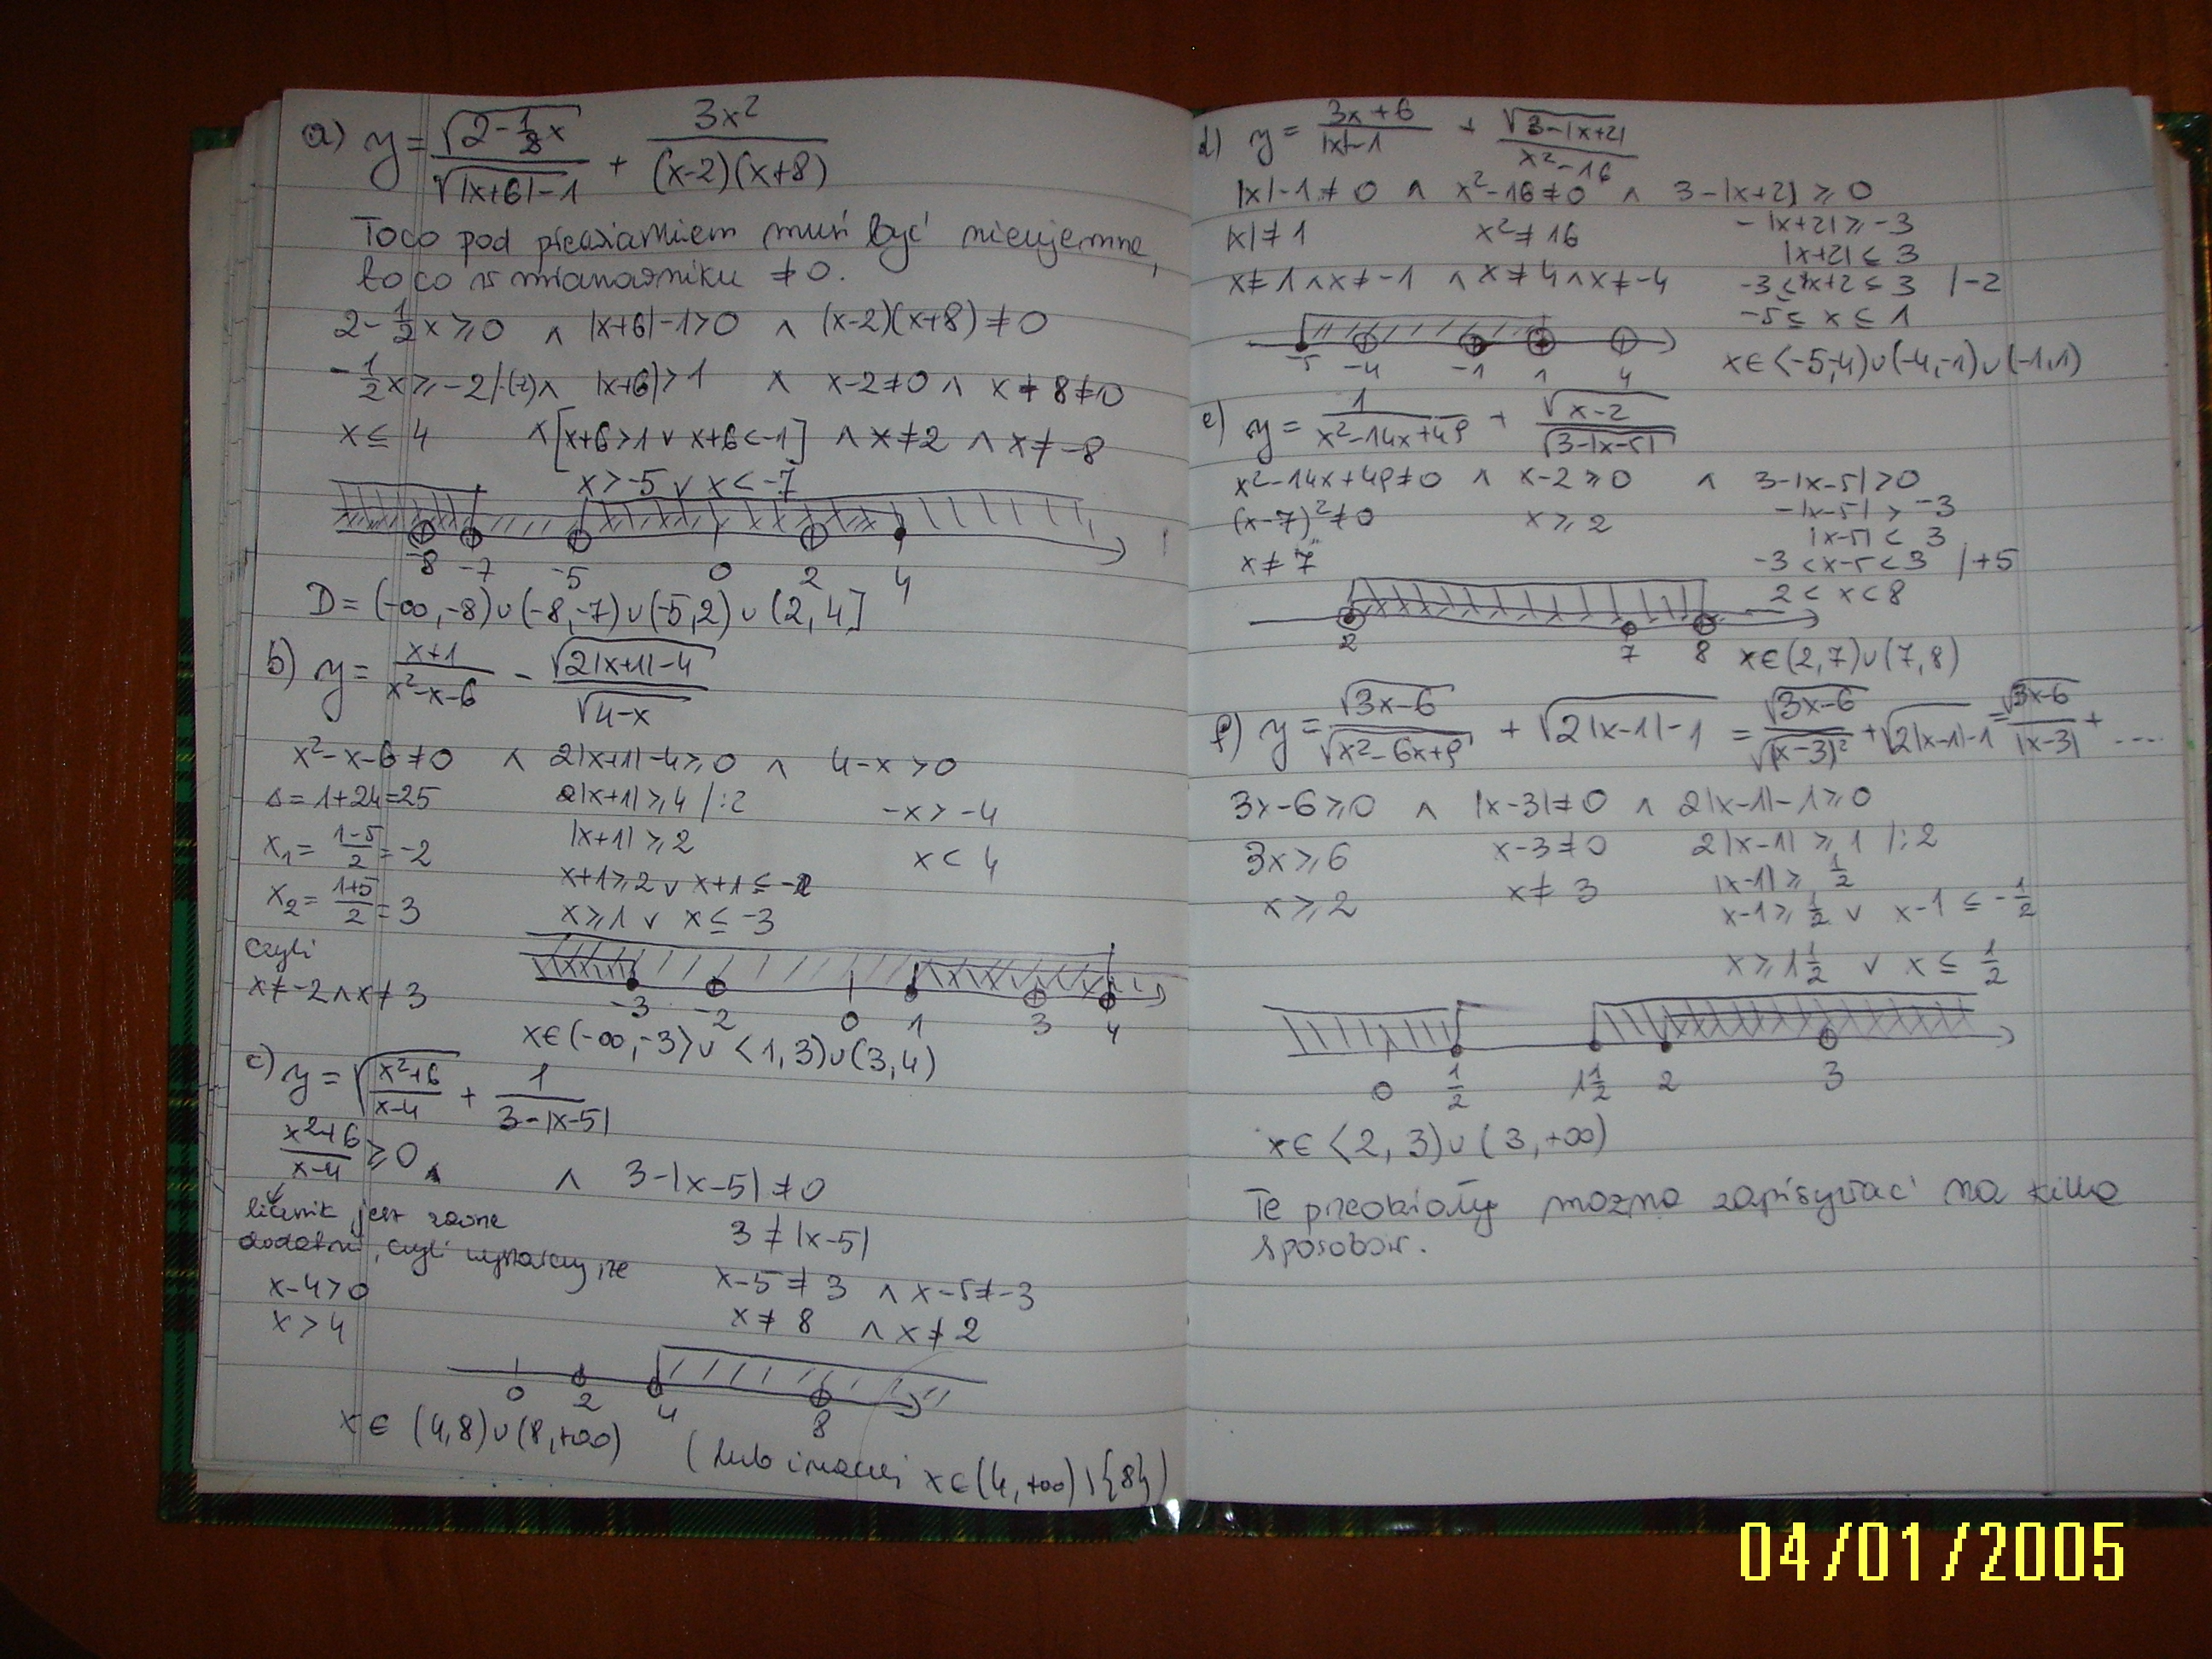 a) y = √(2-1/2x) / √(|x+6|-1) + 3x² / (x-2)(x+8)
To co pod pierwiastkiem musi być nieujemne,
to co w mianowniku ≠0.
2-1/2x ≥ 0 ∧ |x+6|-1>0 ∧ (x-2)(x+8) ≠0
-1/2x ≥ -2 /·(-2) ∧ |x+6|>1 ∧ x-2≠0 ∧ x+8≠0
x ≤ 4 ∧ [x+6>1 ∨ x+6<-1] ∧ x≠2 ∧ x≠-8
x>-5 ∨ x<-7
-8 -7 -5 0 2 4
D = (-∞,-8)∪(-8,-7)∪(-5,2)∪(2,4]
b) y = (x+1)/(x²-x-6) - √(2|x+1|-4) / √(4-x)
x²-x-6≠0 ∧ 2|x+1|-4≥0 ∧ 4-x>0
Δ=1+24=25 2|x+1|≥4 /:2 -x>-4
x₁= (1-5)/2 = -2 |x+1|≥2 x<4
x+1≥2 ∨ x+1≤-2
x₂= (1+5)/2 = 3 x≥1 ∨ x≤-3
czyli
x≠-2 ∧ x≠3
-3 -2 0 1 3 4
x∈(-∞,-3⟩∪⟨1,3)∪(3,4)
c) y = √((x²+6)/(x-4)) + 1/(3-|x-5|)
(x²+6)/(x-4) ≥0 ∧ ∧ 3-|x-5|≠0
licznik jest zawsze 3≠|x-5|
dodatni, czyli wystarczy, że
x-4>0 x-5≠3 ∧ x-5≠-3
x>4 x≠8 ∧ x≠2
0 2 4 8
x∈(4,8)∪(8,+∞) (lub inaczej x∈(4,+∞)\{8})
d) y = (3x+6)/(|x|-1) + √(3-|x+2|) / (x²-16)
|x|-1≠0 ∧ x²-16≠0 ∧ 3-|x+2|≥0
-|x+2|≥-3
|x|≠1 x²≠16
|x+2|≤3
x≠1∧x≠-1 ∧ x≠4∧x≠-4 -3≤x+2≤3 /-2
-5≤x≤1
-5 -4 -1 1 4
x∈⟨-5,-4)∪(-4,-1)∪(-1,1)
e) y = 1/(x²-14x+49) + √(x-2) / √(3-|x-5|)
x²-14x+49≠0 ∧ x-2≥0 ∧ 3-|x-5|>0
(x-7)²≠0 x≥2 -|x-5|>-3
|x-5|<3
x≠7 -3<x-5<3 /+5
2<x<8
2 7 8
x∈(2,7)∪(7,8)
f) y = √(3x-6) / √(x²-6x+9) + √(2|x-1|-1) = √(3x-6) / √((x-3)²) + √(2|x-1|-1) = √(3x-6) / |x-3| + ....
3x-6≥0 ∧ |x-3|≠0 ∧ 2|x-1|-1≥0
3x≥6 x-3≠0 2|x-1|≥1 /:2
x≥2 x≠3 |x-1|≥1/2
x-1≥1/2 ∨ x-1≤-1/2
x≥1 1/2 ∨ x≤1/2
0 1/2 1 1/2 2 3
x∈⟨2,3)∪(3,+∞)
Te przedziały można zapisywać na kilka
sposobów.
04/01/2005